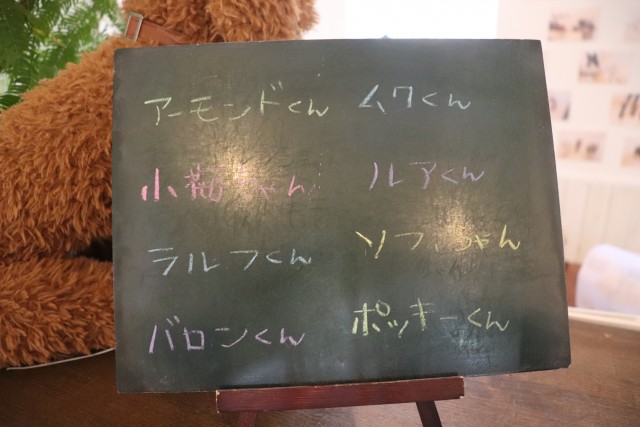 アーモンドくん
小梅ちゃん
ラルフくん
バロンくん
ムクくん
ルアくん
ソフィちゃん
ポッキーくん